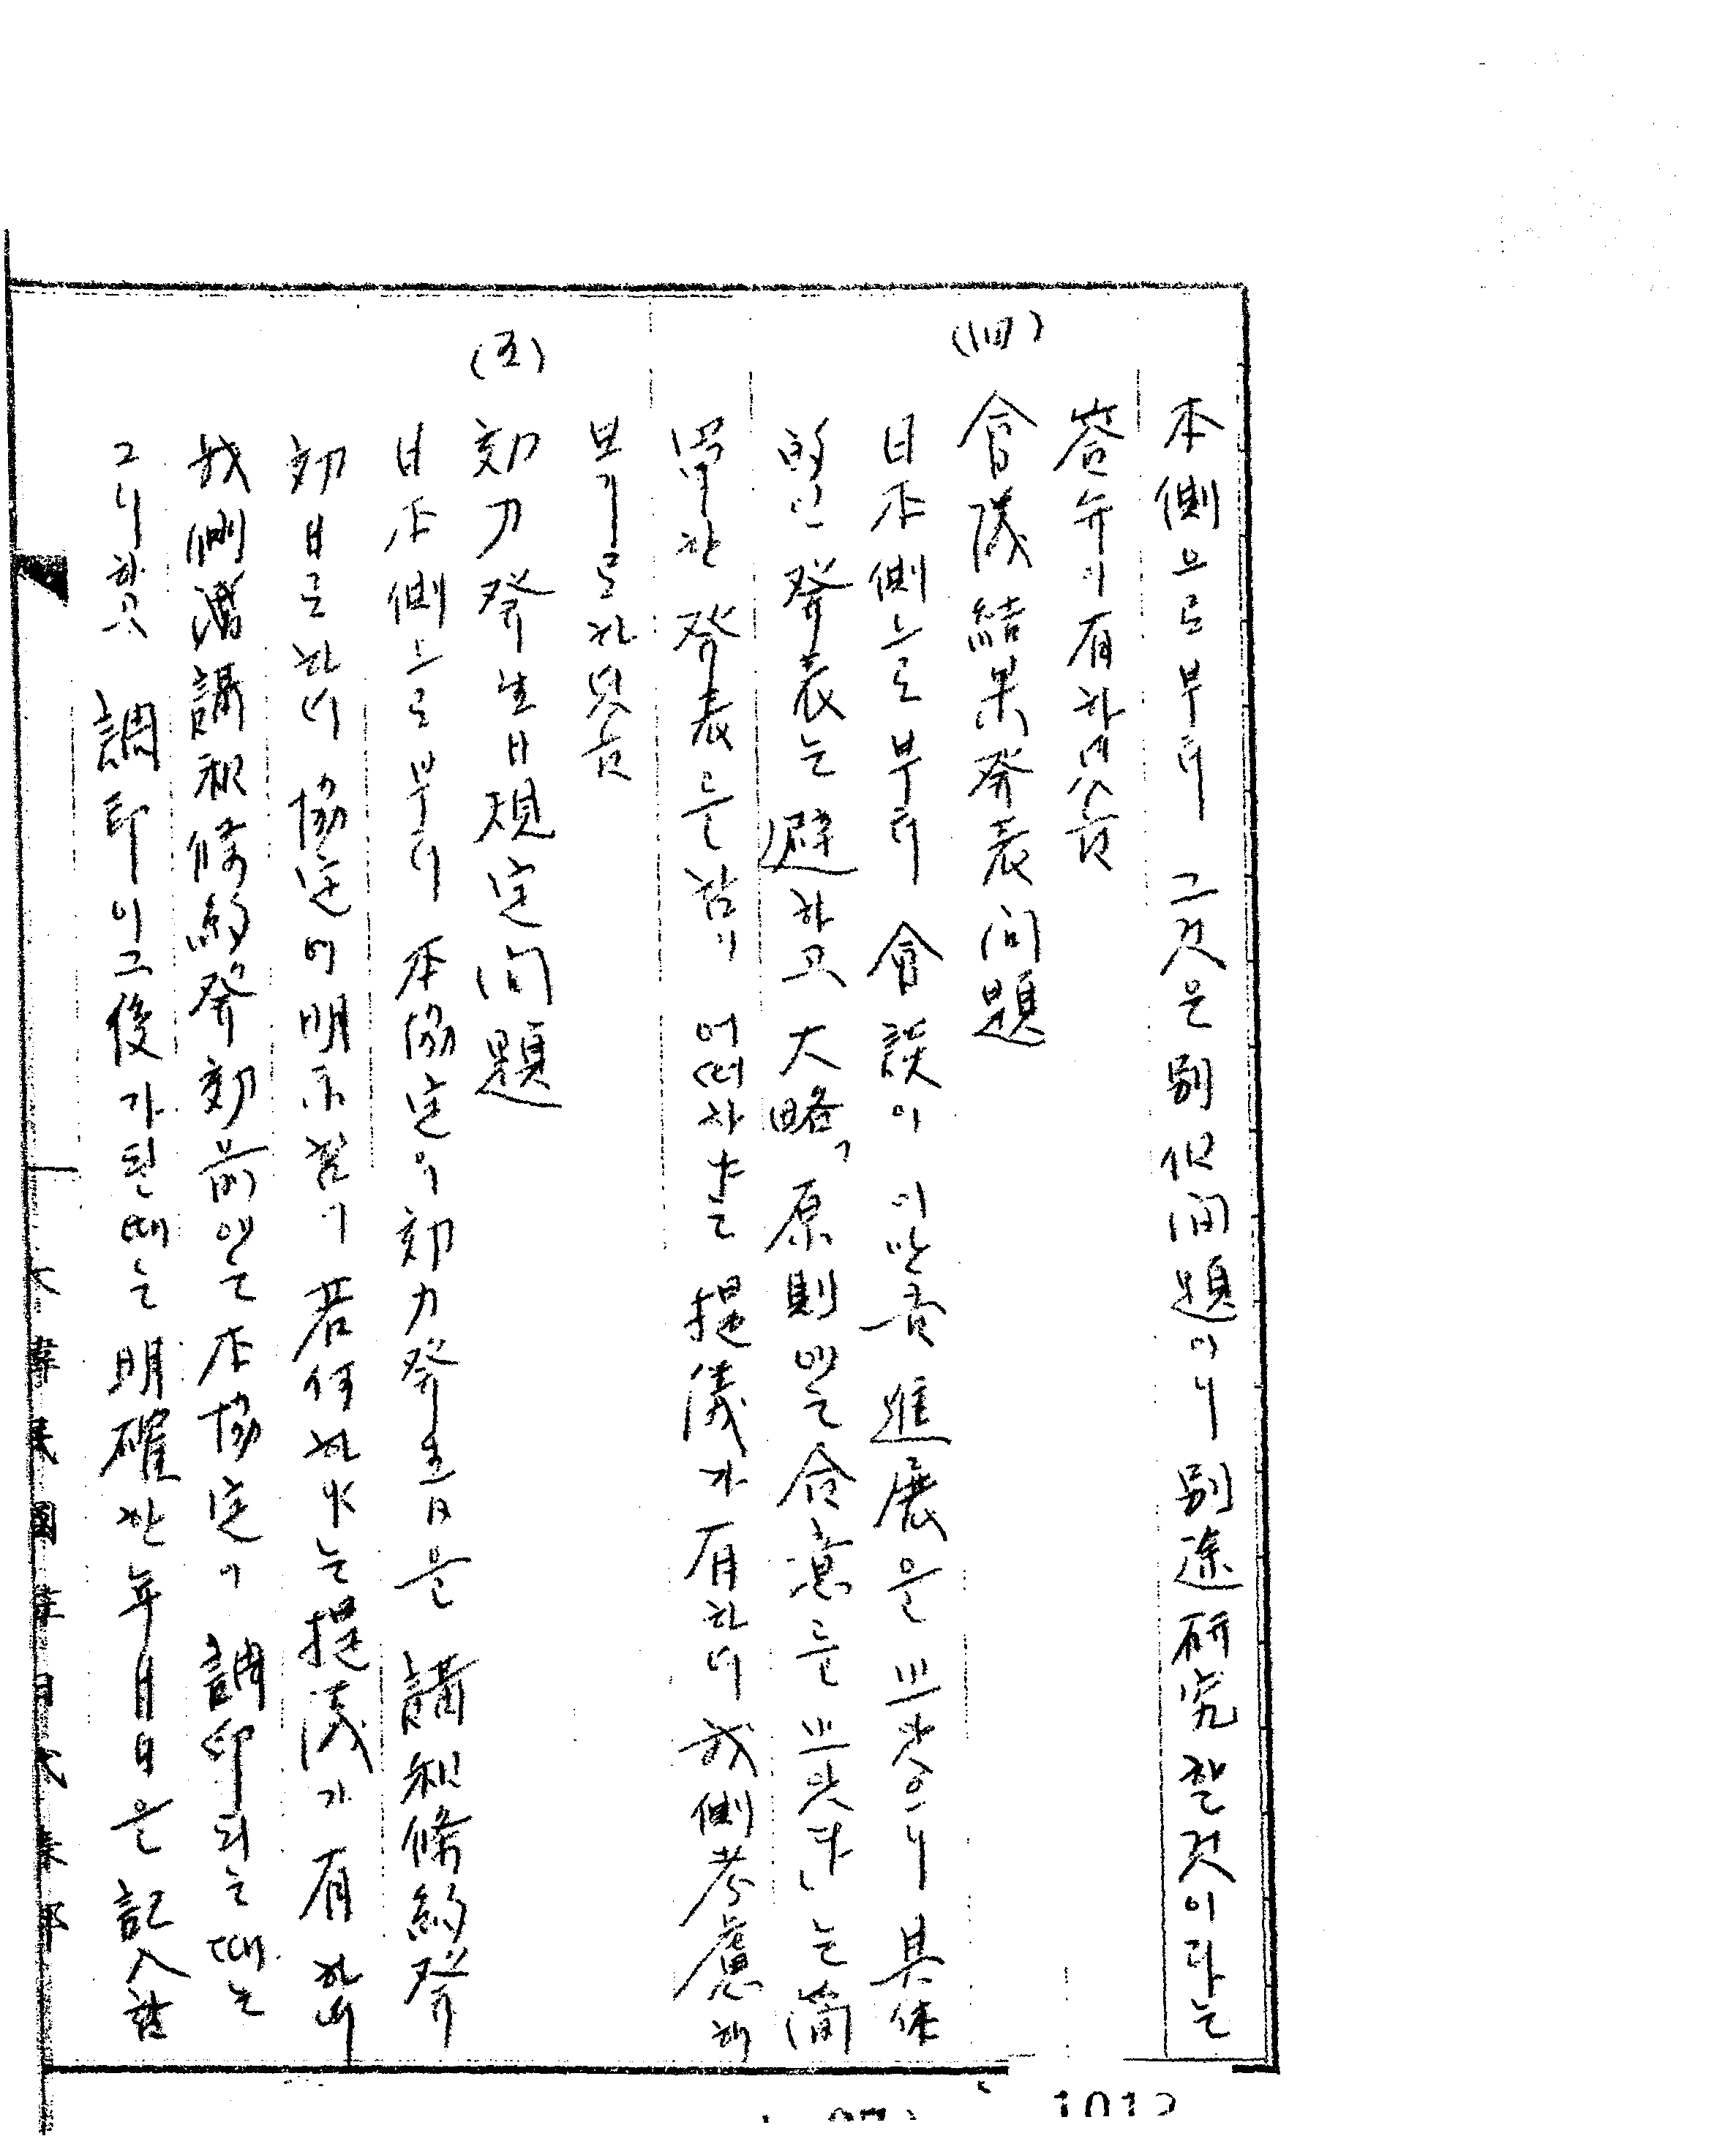 本側으로부터 그것은 別個問題이니 別途硏究할것이라는
答弁이有하였음
(四) 會議結果発表問題
日本側으로부터 會談이 이만큼 進展을 보았으니 具体
的인 発表는 避하고 大略「原則에는 合意를 보았다」는 簡
單한 発表를 함이 어떠하냐는 提議가 有하니 我側考慮해
보기로하였음
(五) 効力発生日規定問題
日本側으로부터 本協定의 効力発生日을 講和條約発
効日로하되 協定에 明示함이 若何하냐는 提議가 有하여
我側은 講和條約発効前에는 本協定이 調印되는때는
그리하고 調印이그後가된때는 明確한 年月日을 記入함